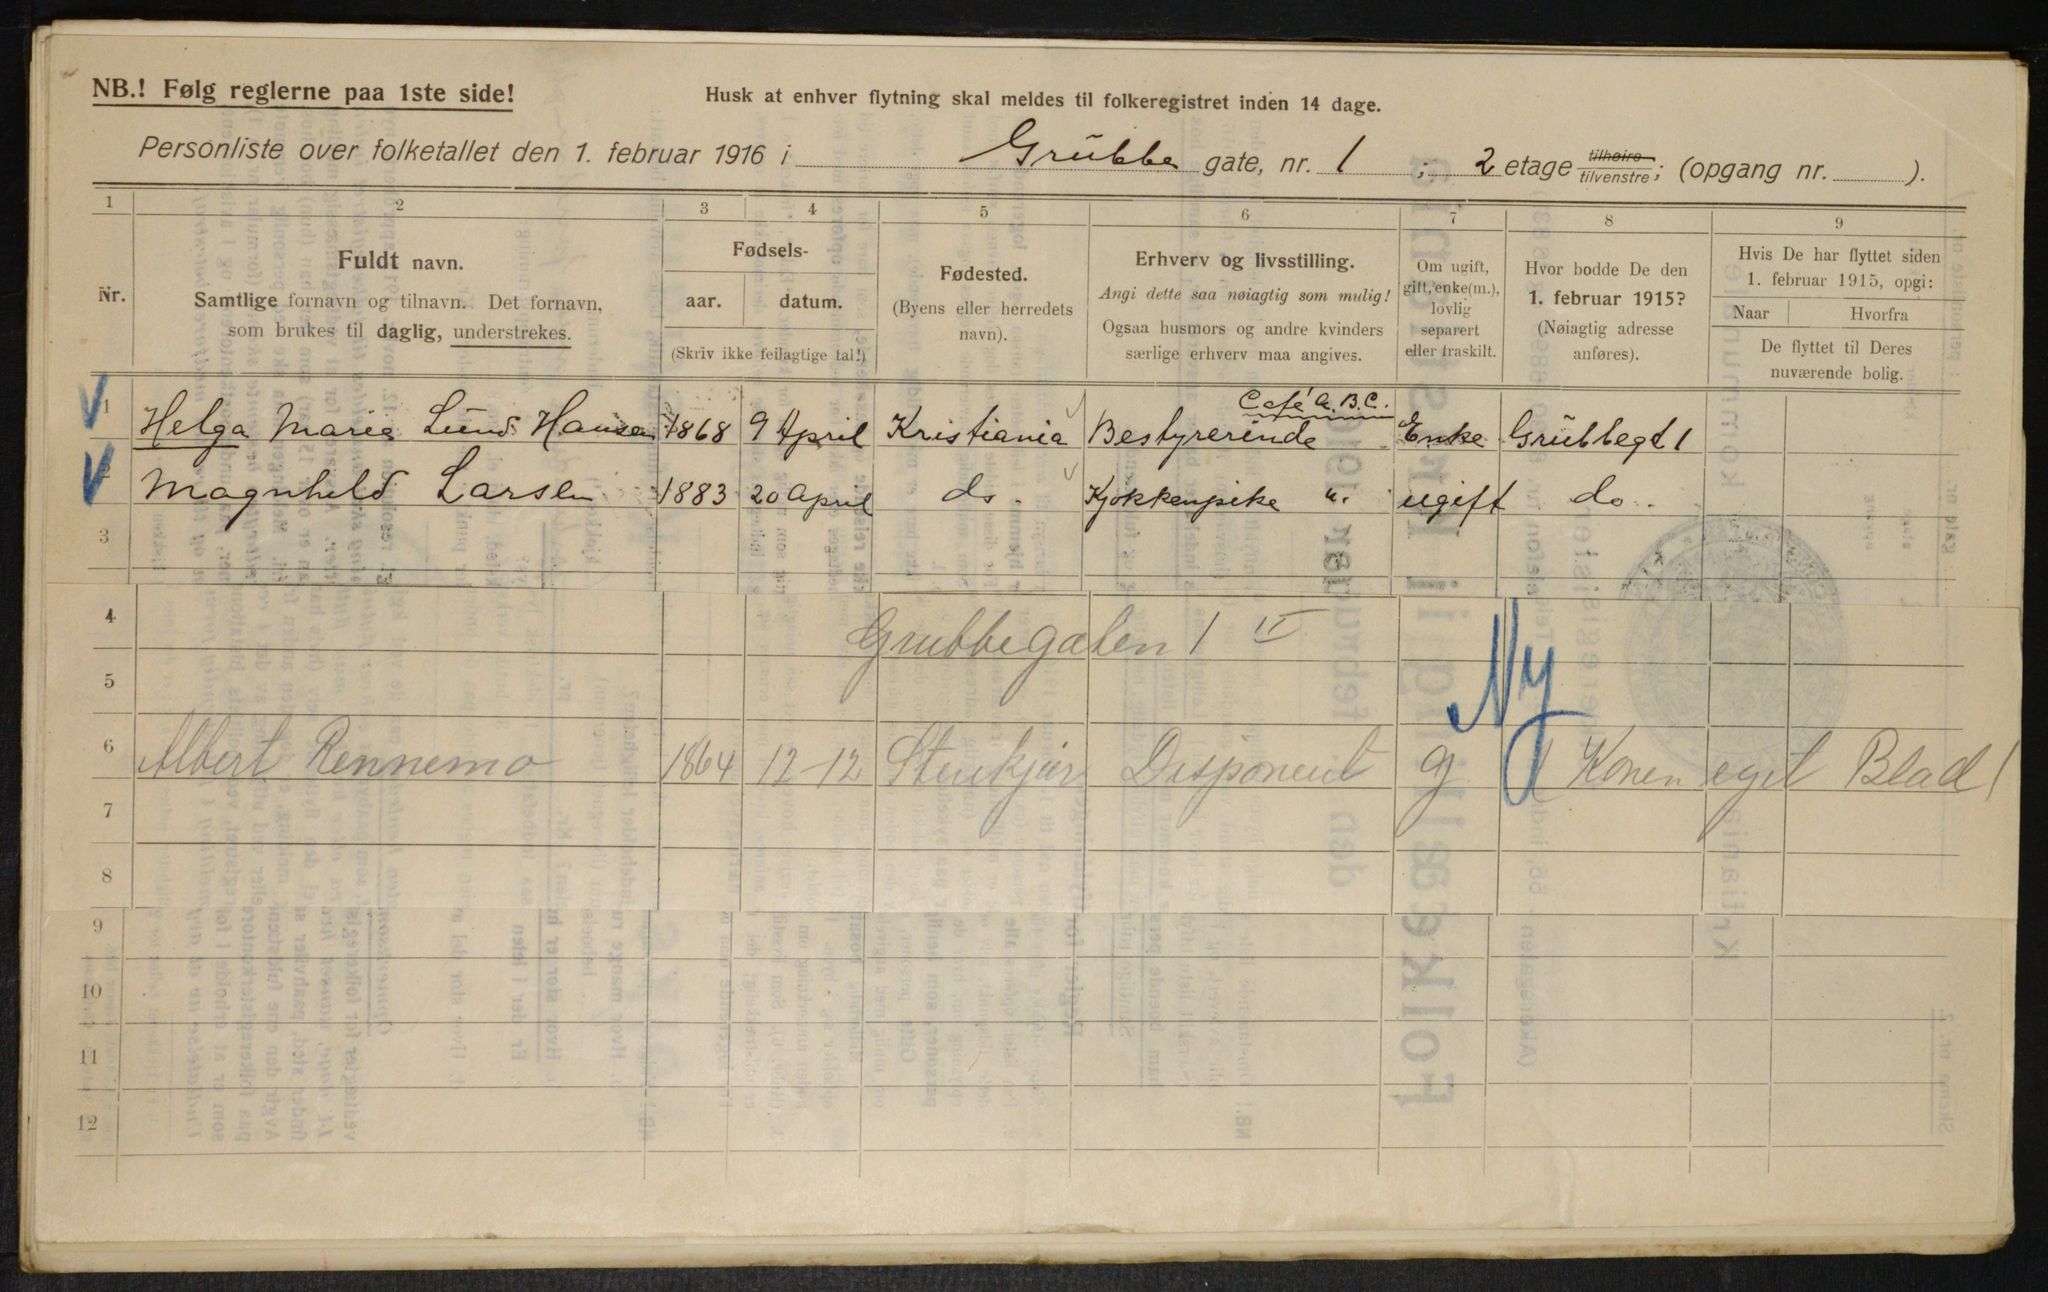 NB.! Følg reglerne paa 1ste side!
Husk at enhver flytning skal meldes til folkeregistret inden 14 dage.
Personliste over folketallet den 1. februar 1916 i Grübbe gate, nr. 1 ; 2 etage tilhøire tilvenstre; (opgang nr. ).
1 2 3 4 5 6 7 8 9
Nr.
Fuldt navn.
Samtlige fornavn og tilnavn. Det fornavn,
som brukes til daglig, understrekes.
Fødsels-
aar. datum.
(Skriv ikke feilagtige tal!)
Fødested.
(Byens eller herredets
navn).
Erhverv og livsstilling.
Angi dette saa nøiagtig som mulig!
Ogsaa husmors og andre kvinders
særlige erhverv maa angives.
Om ugift,
gift, enke(m.),
lovlig
separert
eller fraskilt.
Hvor bodde De den
1. februar 1915?
(Nøiagtig adresse
anføres).
Hvis De har flyttet siden
1. februar 1915, opgi:
Naar Hvorfra
De flyttet til Deres
nuværende bolig.
Café A.B.C.
1 Helga Marie Lünd Hansen 1868 9 April Kristiania Bestyrerinde Enke Grübbegt 1
2 Magnhild Larsen 1883 20 April do. Kjøkkenpike ugift do.
3
4 Grubbegaten 1 II
5
Ny
6 Albert Rennemo 1864 12-12 Stenkjær Disponent g (Konen eget Blad)
7
8
9
10
11
12